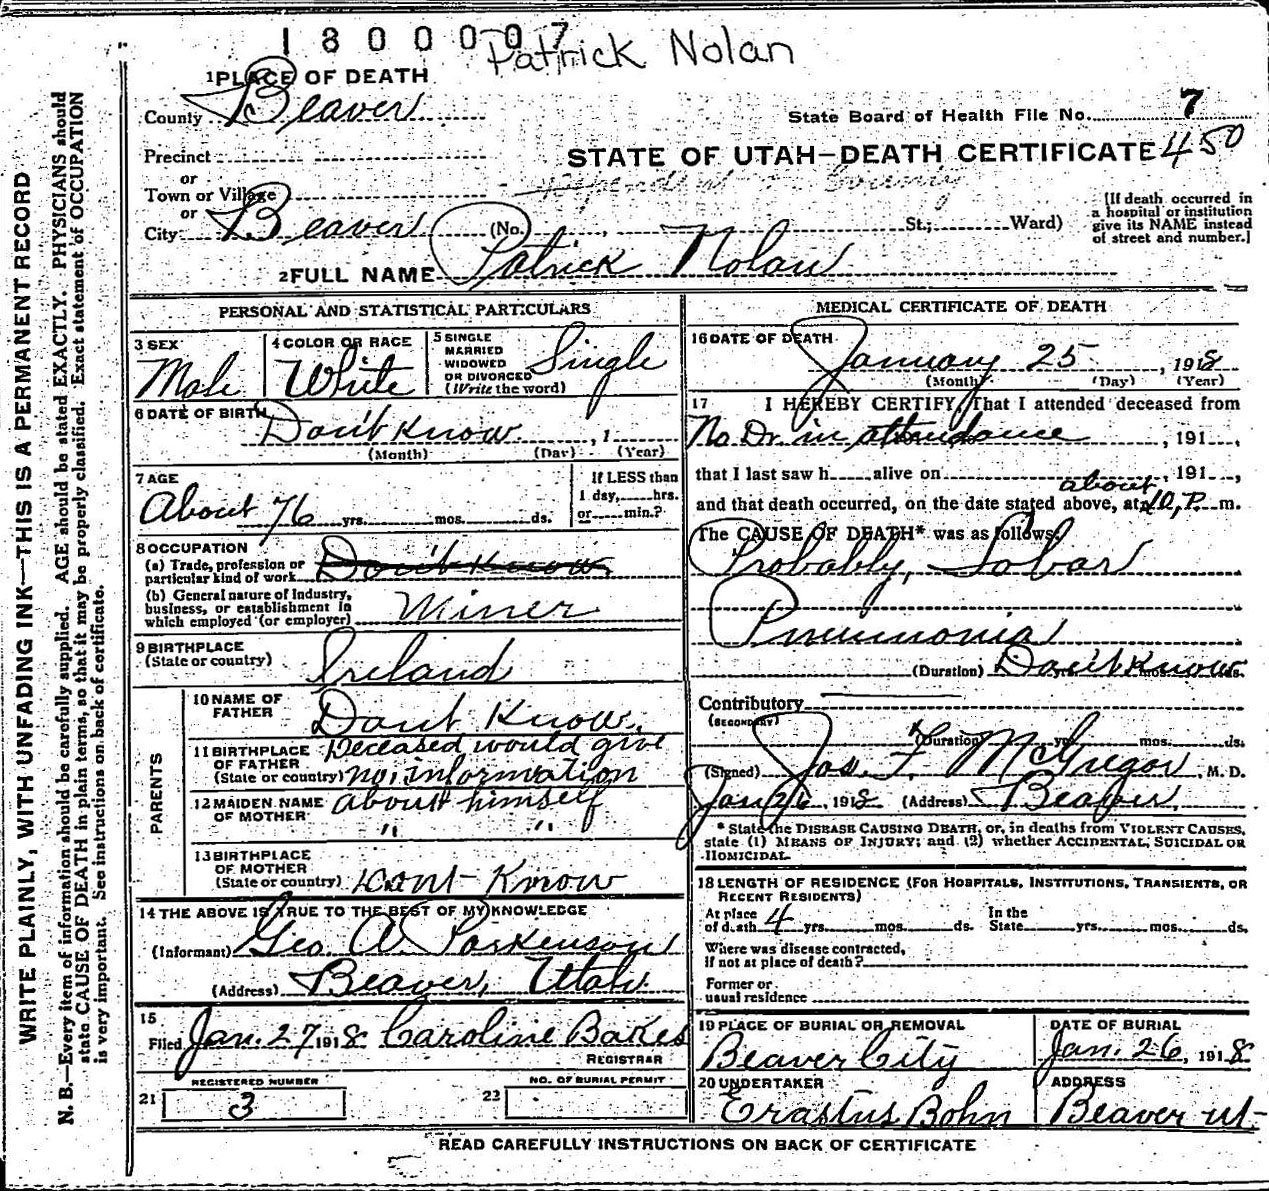 1800007
Patrick Nolan
1 PLACE OF DEATH
County Beaver
State Board of Health File No. 7
Precinct
STATE OF UTAH—DEATH CERTIFICATE 450
or
Town or Village
or
City Beaver (No. , St.; Ward)
[If death occurred in
a hospital or institution
give its NAME instead
of street and number.]
2 FULL NAME Patrick Nolan
PERSONAL AND STATISTICAL PARTICULARS
3 SEX
Male
4 COLOR OR RACE
White
5 SINGLE
MARRIED
WIDOWED
OR DIVORCED
(Write the word)
Single
6 DATE OF BIRTH
Don't know , 1
(Month) (Day) (Year)
7 AGE
About 76 yrs. mos. ds.
If LESS than
1 day, hrs.
or min.?
8 OCCUPATION
(a) Trade, profession or
particular kind of work Don't Know
(b) General nature of Industry,
business, or establishment in
which employed (or employer) Miner
9 BIRTHPLACE
(State or country) Ireland
PARENTS
10 NAME OF
FATHER Dont Know.
11 BIRTHPLACE
OF FATHER
(State or country)
Deceased would give
no, information
12 MAIDEN NAME
OF MOTHER
about himself
" "
13 BIRTHPLACE
OF MOTHER
(State or country) Dont Know
14 THE ABOVE IS TRUE TO THE BEST OF MY KNOWLEDGE
(Informant) Geo. A. Parkenson
(Address) Beaver, Utah.
15
Filed Jan. 27 1918 Caroline Bakes
REGISTRAR
REGISTERED NUMBER
21 3
NO. OF BURIAL PERMIT
22
MEDICAL CERTIFICATE OF DEATH
16 DATE OF DEATH
January 25 , 1918
(Month) (Day) (Year)
17 I HEREBY CERTIFY, That I attended deceased from
No Dr. in attendance , 191 ,
that I last saw h alive on , 191 ,
about
and that death occurred, on the date stated above, at 10, P. m.
The CAUSE OF DEATH* was as follows:
Probably, Lobar
Pneumonia
(Duration) Don't Know yrs. mos. ds.
Contributory
(SECONDARY)
(Duration) yrs. mos. ds.
(Signed) Jos. F. McGregor, M. D.
Jan 26, 1918 (Address) Beaver
* State the DISEASE CAUSING DEATH, or, in deaths from VIOLENT CAUSES,
state (1) MEANS OF INJURY; and (2) whether ACCIDENTAL, SUICIDAL OR
HOMICIDAL.
18 LENGTH OF RESIDENCE (FOR HOSPITALS, INSTITUTIONS, TRANSIENTS, OR
RECENT RESIDENTS)
At place
of death 4 yrs. mos. ds.
In the
State yrs. mos. ds.
Where was disease contracted,
if not at place of death?
Former or
usual residence
19 PLACE OF BURIAL OR REMOVAL
Beaver City
DATE OF BURIAL
Jan. 26, 1918
20 UNDERTAKER
Erastus Bohn
ADDRESS
Beaver Ut-
READ CAREFULLY INSTRUCTIONS ON BACK OF CERTIFICATE
WRITE PLAINLY, WITH UNFADING INK—THIS IS A PERMANENT RECORD
N. B.—Every item of information should be carefully supplied. AGE should be stated EXACTLY. PHYSICIANS should
state CAUSE OF DEATH in plain terms, so that it may be properly classified. Exact statement of OCCUPATION
is very important. See instructions on back of certificate.